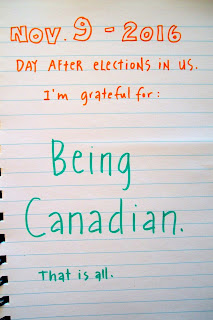 NOV. 9 - 2016
DAY AFTER ELECTIONS IN US.
I'm grateful for:
Being
Canadian.
That is all.